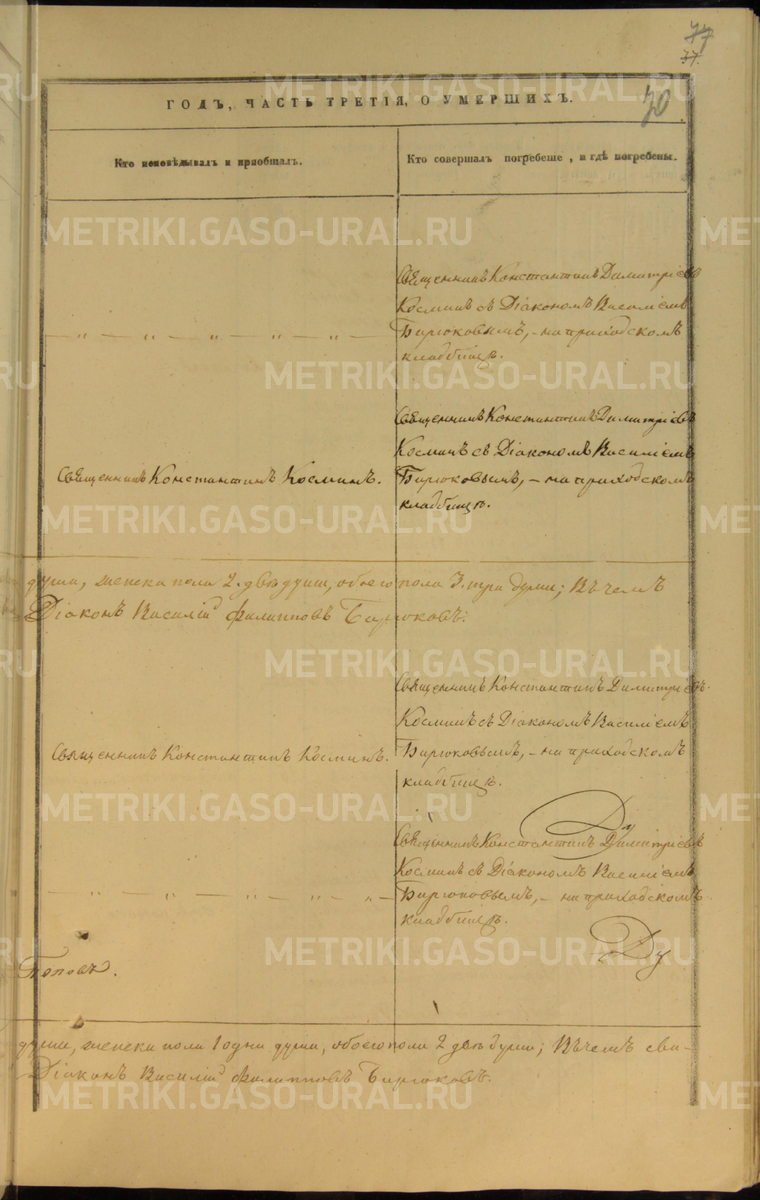 77
37
70
ГОДЪ, ЧАСТЬ ТРЕТІЯ, О УМЕРШИХЪ.
Кто исповѣдывалъ и пріобщалъ.
Кто совершалъ погребеніе, и гдѣ погребены.
Священникъ Константинъ Димитріевъ
Косминъ съ Діакономъ Василіемъ
— „ — „ — „ — „ —
Бирюковымъ, – на приходскомъ
кладбищѣ.
Священникъ Константинъ Димитріевъ
Косминъ съ Діакономъ Василіемъ
Священникъ Константинъ Косминъ.
Бирюковымъ, – на приходскомъ
кладбищѣ.
душа, женска пола 2. двѣ души, обоего пола 3. три души; Въ чемъ
Діаконъ Василій Филипповъ Бирюковъ.
Священникъ Константинъ Димитріевъ
Косминъ съ Діакономъ Василіемъ
Священникъ Константинъ Косминъ.
Бирюковымъ, – на приходскомъ
кладбищѣ.
Священникъ Константинъ Димитріевъ
Косминъ съ Діакономъ Василіемъ
— „ — „ — „ — „ —
Бирюковымъ, – на приходскомъ
кладбищѣ.
Поповъ.
душа, женска пола 1 одна душа, обоего пола 2 двѣ души; Въ чемъ сви-
Діаконъ Василій Филипповъ Бирюковъ.
METRIKI.GASO-URAL.RU